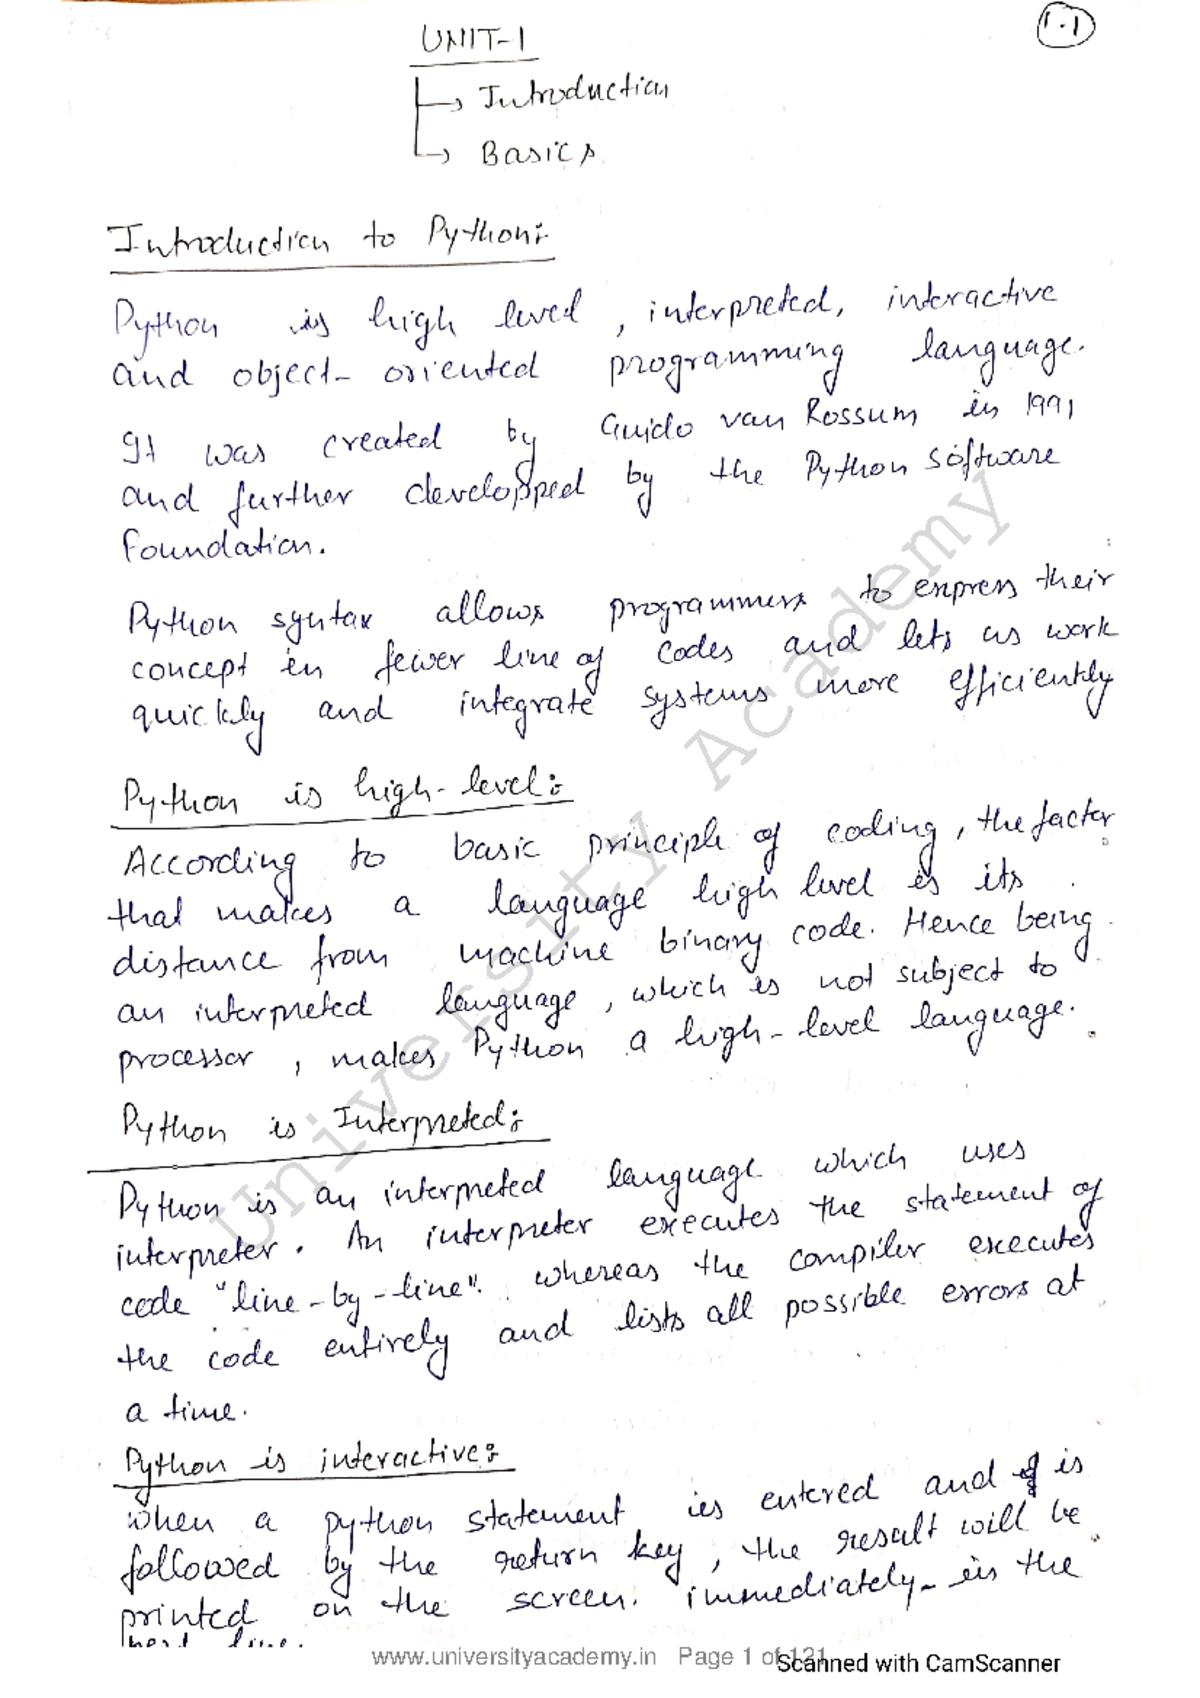 1.1
UNIT-1
→ Introduction
→ Basics
Introduction to Python:-
Python is high level, interpreted, interactive
and object-oriented programming language.
It was created by Guido van Rossum in 1991
and further developed by the Python software
foundation.
Python syntax allows programmers to express their
concept in fewer line of codes and lets us work
quickly and integrate systems more efficiently
Python is high-level:-
According to basic principle of coding, the factor
that makes a language high level is its
distance from machine binary code. Hence being
an interpreted language, which is not subject to
processor, makes Python a high-level language.
Python is Interpreted:-
Python is an interpreted language which uses
interpreter. An interpreter executes the statement of
code "line-by-line". whereas the compiler executes
the code entirely and lists all possible errors at
a time.
Python is interactive:-
When a python statement is entered and is
followed by the return key, the result will be
printed on the screen. immediately in the
next line.
University Academy
www.universityacademy.in Page 1 of 121
Scanned with CamScanner